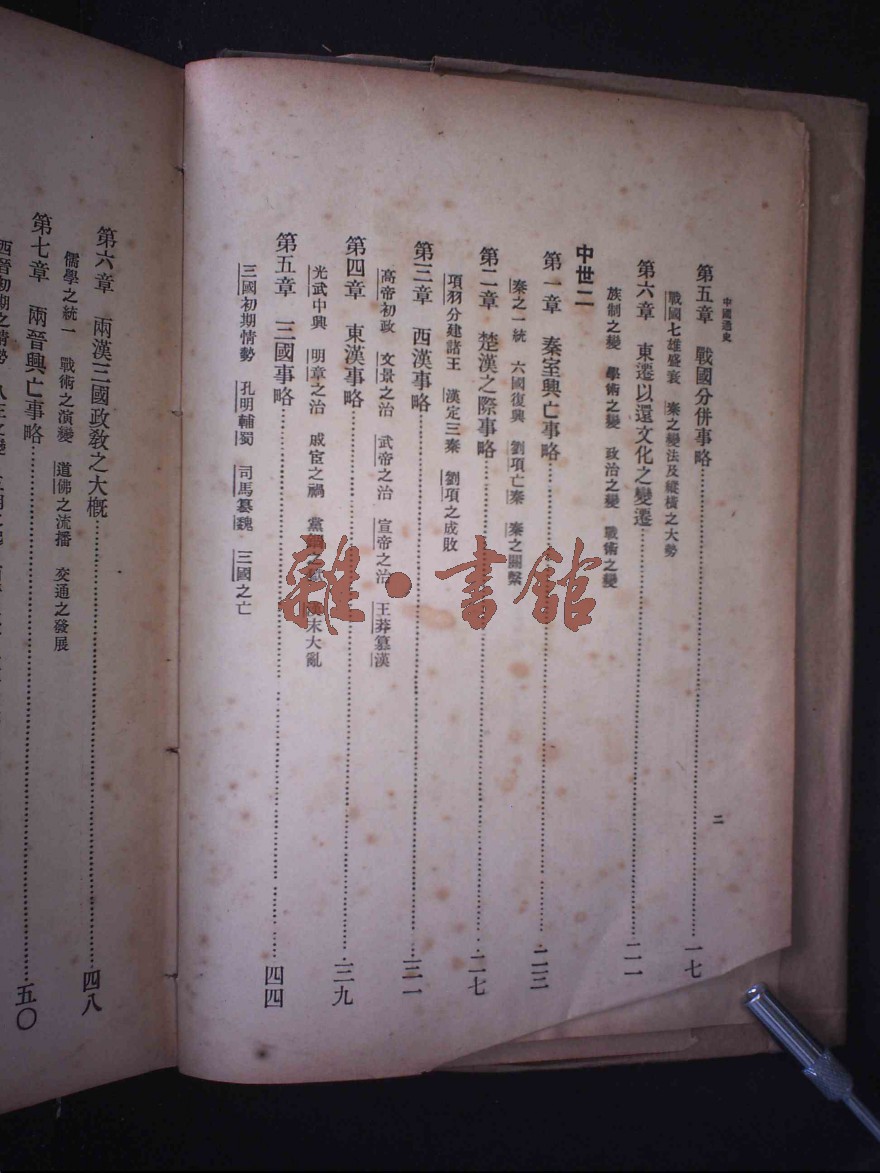 中國通史
二
第五章　戰國分併事略……一七
戰國七雄盛衰　秦之變法及縱橫之大勢
第六章　東遷以還文化之變遷……二一
族制之變　學術之變　政治之變　戰術之變
中世二
第一章　秦室興亡事略……二三
秦之一統　六國復興　劉項亡秦　秦之關繫
第二章　楚漢之際事略……二七
項羽分建諸王　漢定三秦　劉項之成敗
第三章　西漢事略……三一
高帝初政　文景之治　武帝之治　宣帝之治　王莽篡漢
第四章　東漢事略……三九
光武中興　明章之治　戚宦之禍　黨　之　　末大亂
第五章　三國事略……四四
三國初期情勢　孔明輔蜀　司馬篡魏　三國之亡
第六章　兩漢三國政教之大概……四八
儒學之統一　戰術之演變　道佛之流播　交通之發展
第七章　兩晉興亡事略……五〇
西晉初期之情勢
雜·書館